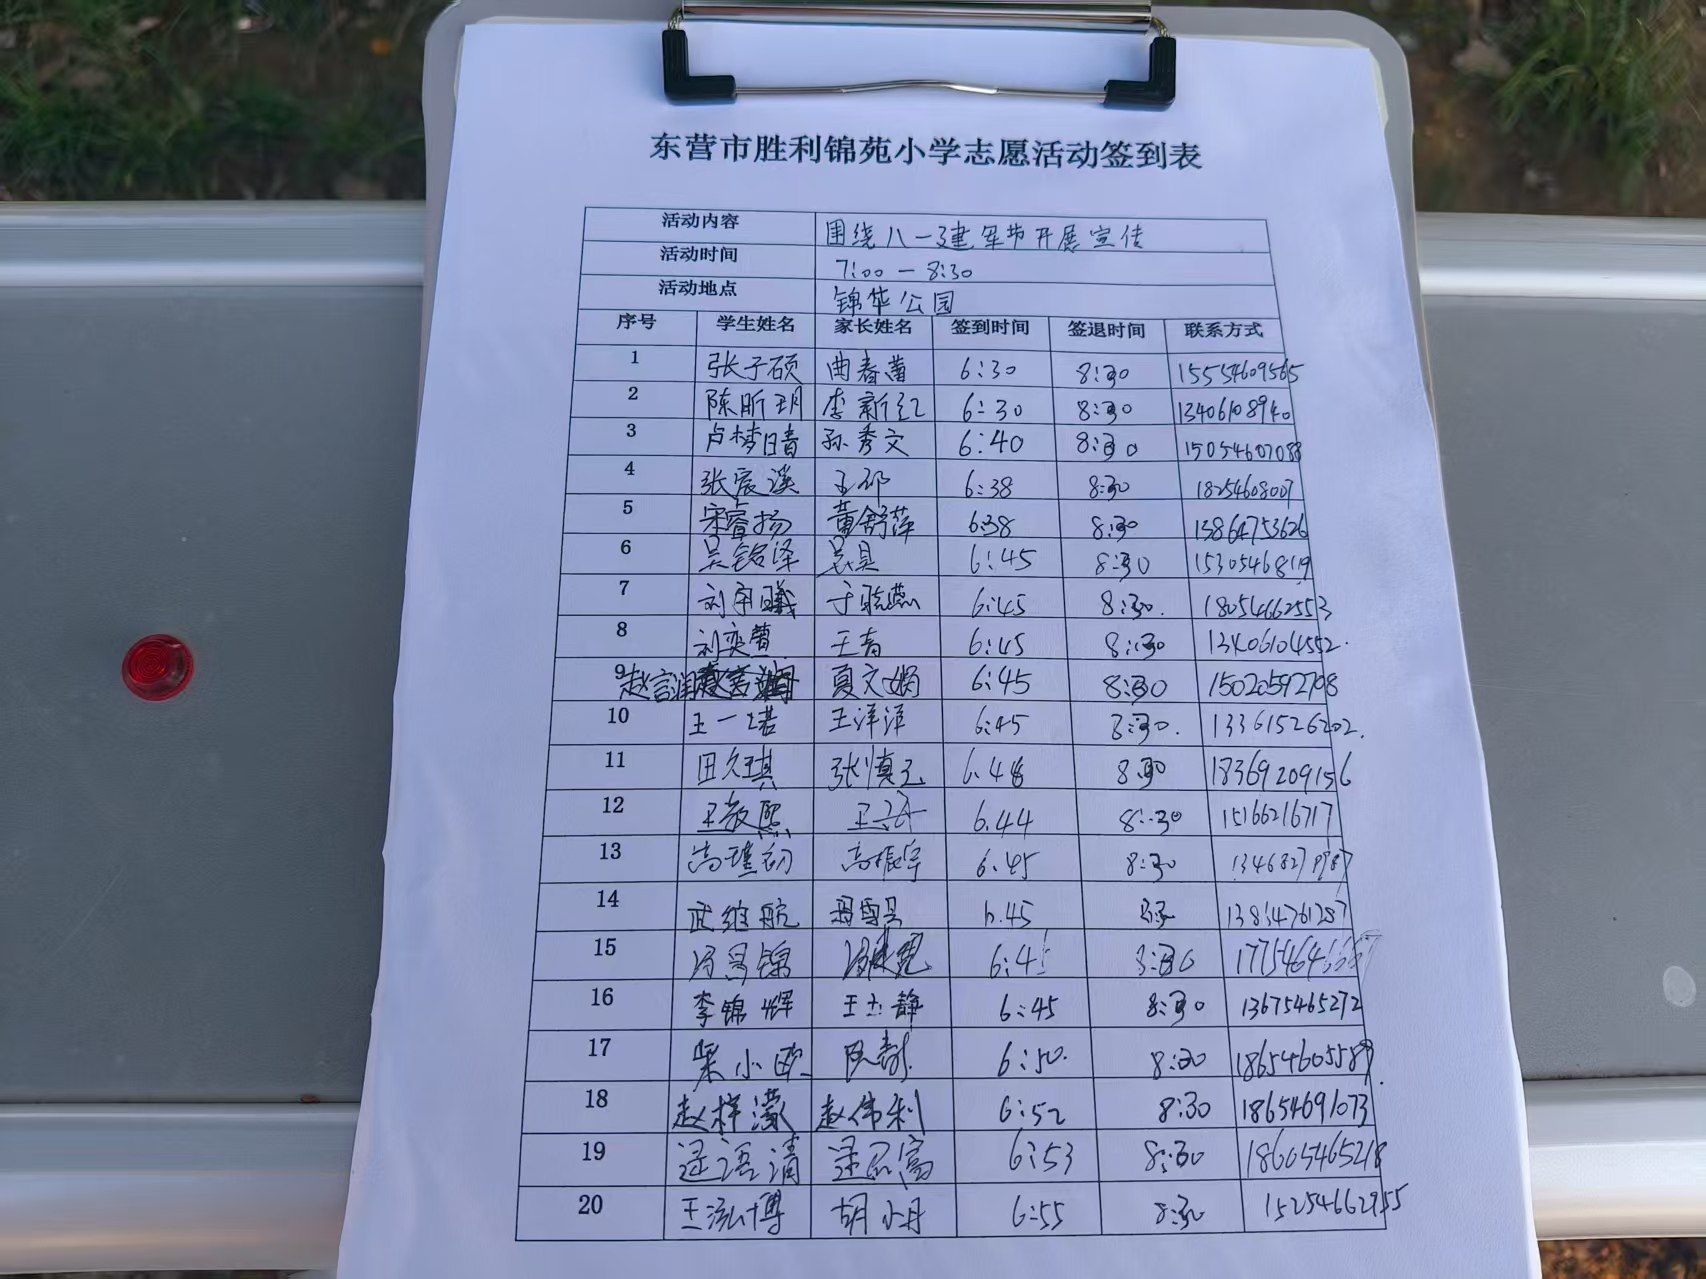 东营市胜利锦苑小学志愿活动签到表
活动内容 围绕八一建军节开展宣传
活动时间 7:00-8:30
活动地点 锦华公园
序号 学生姓名 家长姓名 签到时间 签退时间 联系方式
1 张子硕 曲春蕾 6:30 8:30 15554609565
2 陈昕玥 李新红 6:30 8:30 13406108940
3 卢梦晴 孙秀文 6:40 8:30
4 张宸溪 6:38 8:30 18254608007
5 宋睿扬 黄舒萍 6:38 8:30 13864753626
6 吴铭泽 6:45 8:30 15305468119
7 刘宇曦 于晓燕 6:45 8:30. 18054662553
8 刘奕萱 王青 6:45 8:30 13406104552.
9 赵言润 夏文娴 6:45 8:30
10 王一诺 王洋洋 6:45 8:30. 13361526202.
11 田久琪 6.48 8:30 18369209156
12 王敬熙 6.44 8:30 15166216717
13 高瑾初 高振宇 6:45 8:30
14 武维航 6.45 13854761287
15 冯昌锦 6:45 8:30
16 李锦辉 王志静 6:45 8:30 13675465272
17 柴小欧 6:50. 8:30 18654605589.
18 赵梓潆 赵伟利 6:52 8:30 18654691073
19 逯语清 6:53 8:30 18605465218
20 王泓博 胡小月 6:55 8:30 15254662955